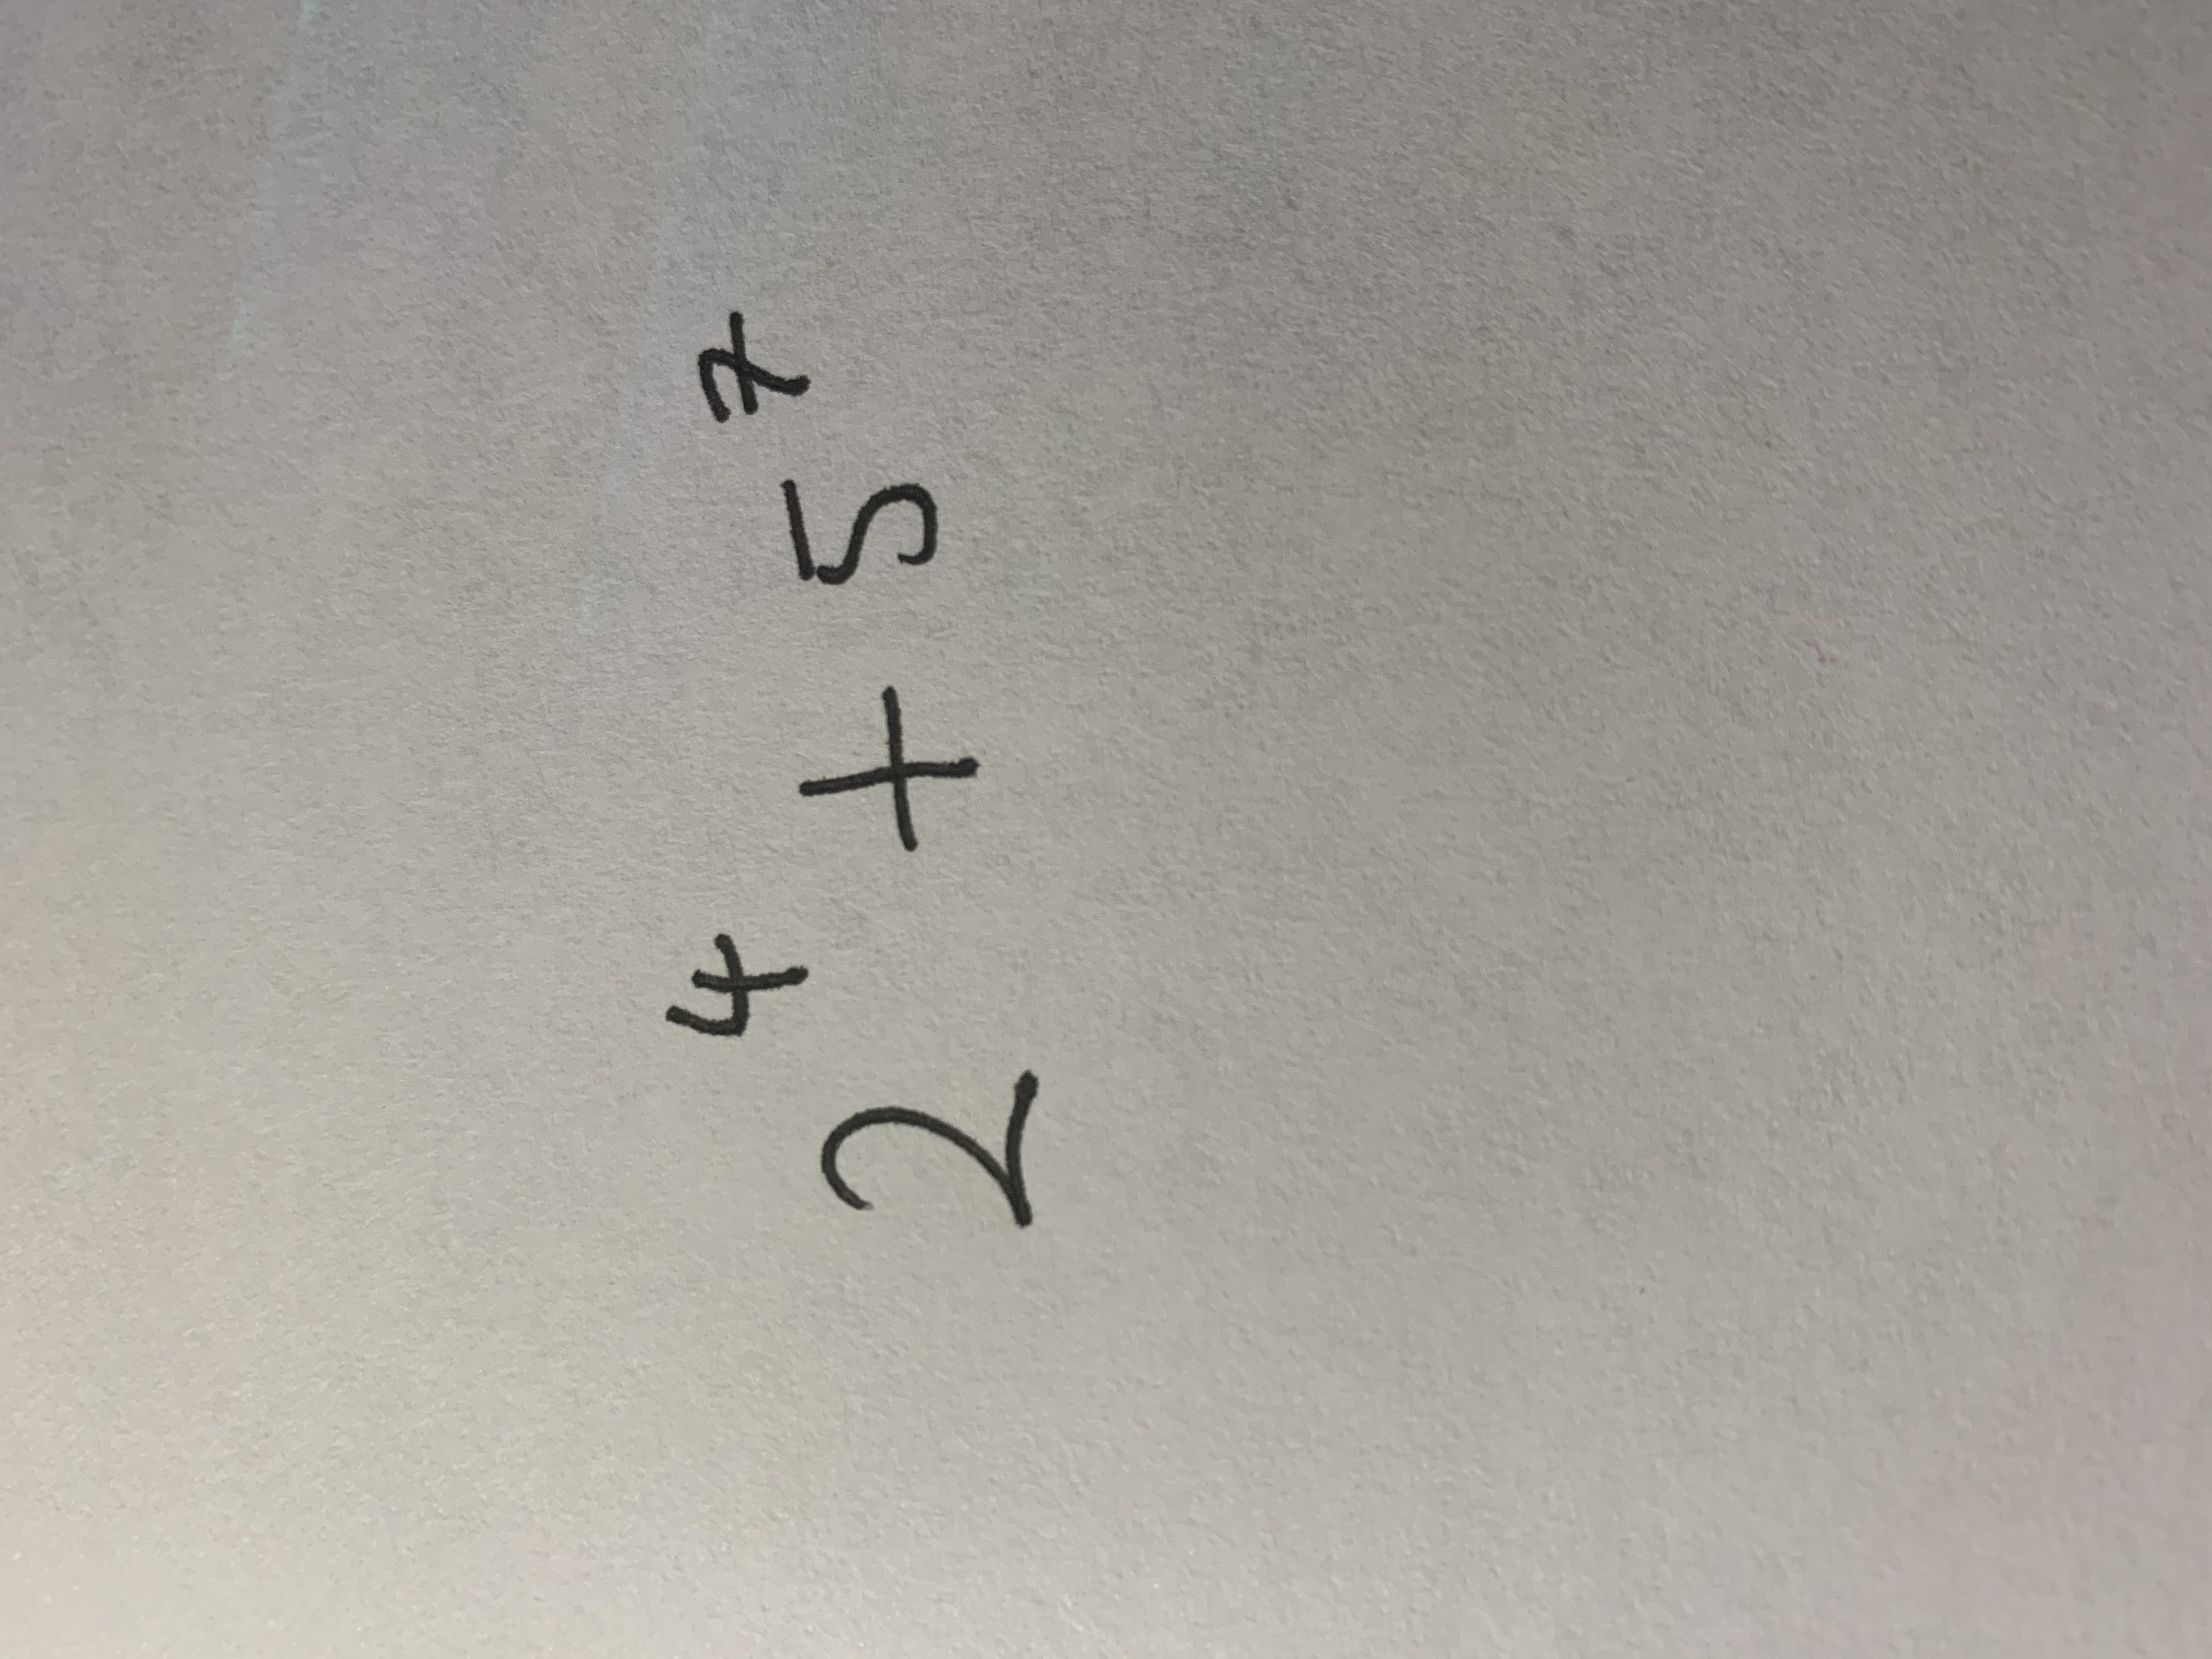 2⁴ + 5⁷